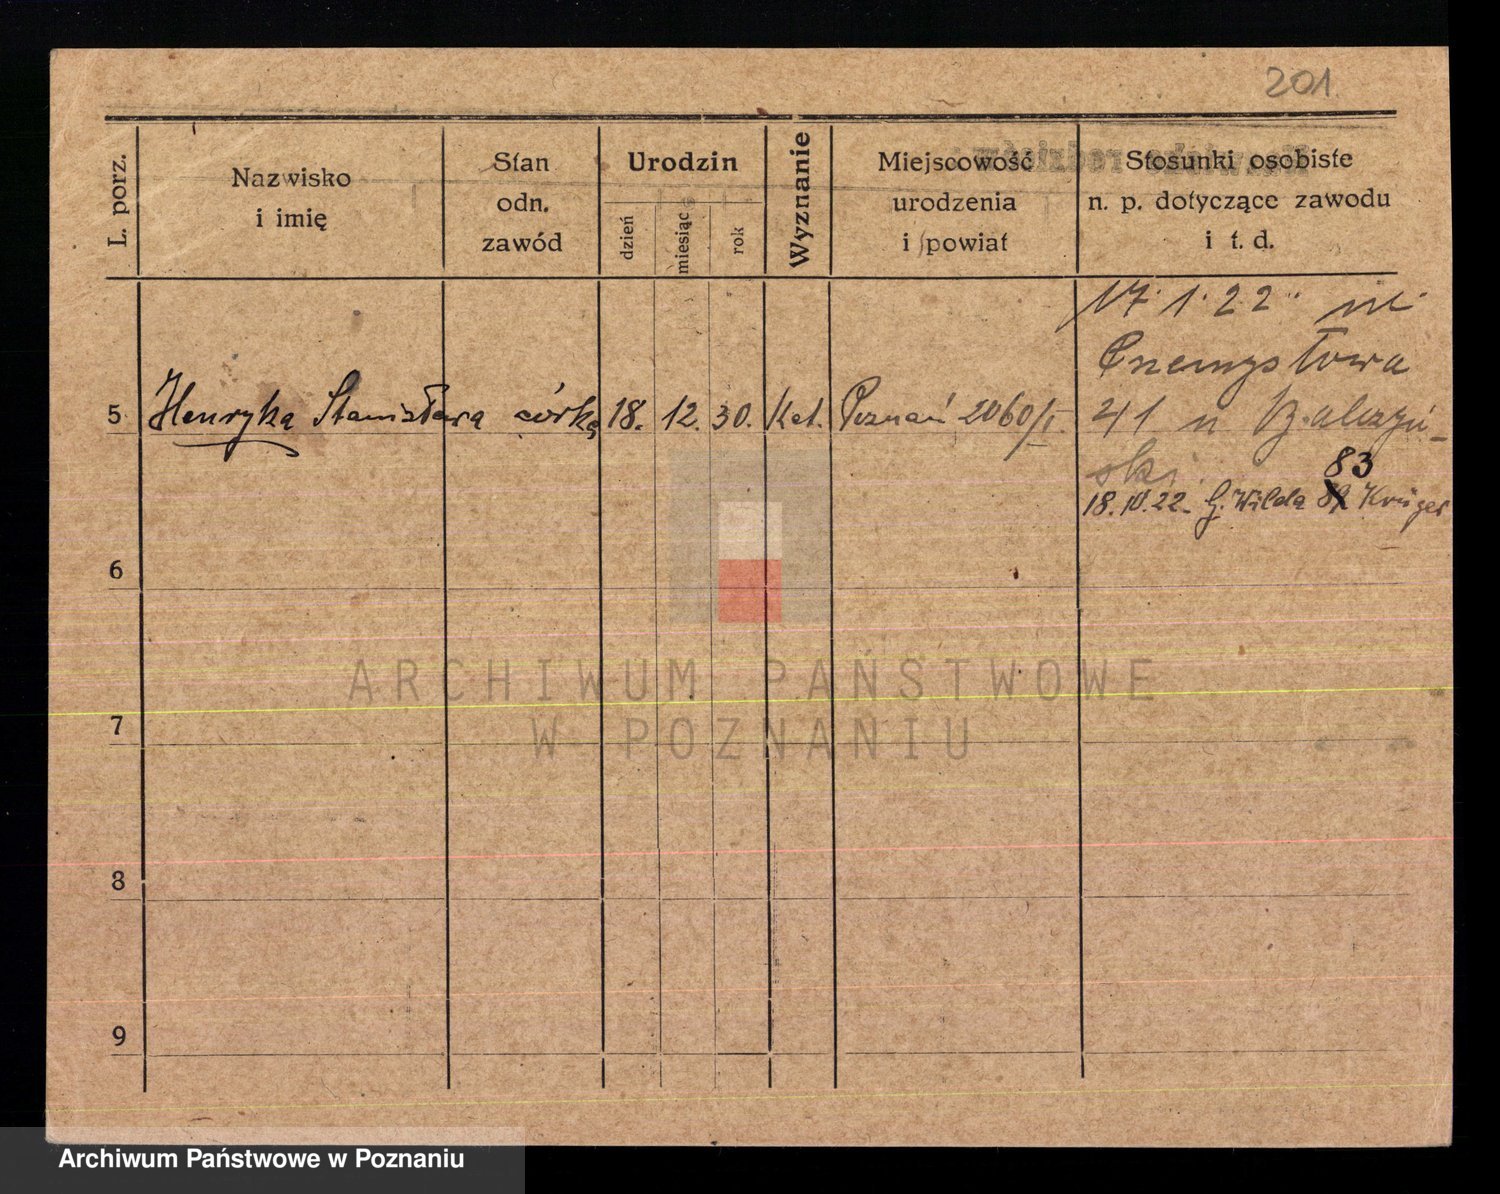 201
L. porz.
Nazwisko
i imię
Stan
odn.
zawód
Urodzin
dzień
miesiąc
rok
Wyznanie
Miejscowość
urodzenia
i powiat
Stosunki osobiste
n. p. dotyczące zawodu
i t. d.
17.1.22
Przemysłowa
5 Henryka Stanisława córka 18. 12. 30. Kat. Poznań 2060/I. 41 u Balczyń-
ski.
83
18.10.22. G. Wilda Krüger
6
7
8
9
ARCHIWUM PAŃSTWOWE
W POZNANIU
Archiwum Państwowe w Poznaniu